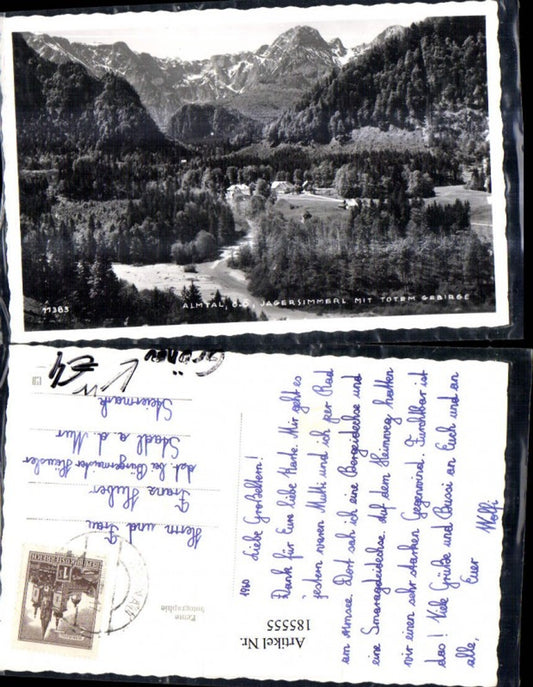 11383
ALMTAL, O.Ö., JAGERSIMMERL MIT TOTEM GEBIRGE
1960
Liebe Großeltern!
Dank für Eure liebe Karte. Mir geht es
gestern waren Mutti und ich per Rad
am Almsee. Dort sah ich eine Bergeidechse und
eine Smaragdeidechse. Auf dem Heimweg hatten
wir einen sehr starken Gegenwind. Furchtbar ist
das! Viele Grüße und Bussi an Euch und an
alle,
Euer
Wolfi
Herrn und Frau
Franz Huber
Stadl a. d. Mur
Steiermark
Echte
Photographie
Artikel Nr.
185555